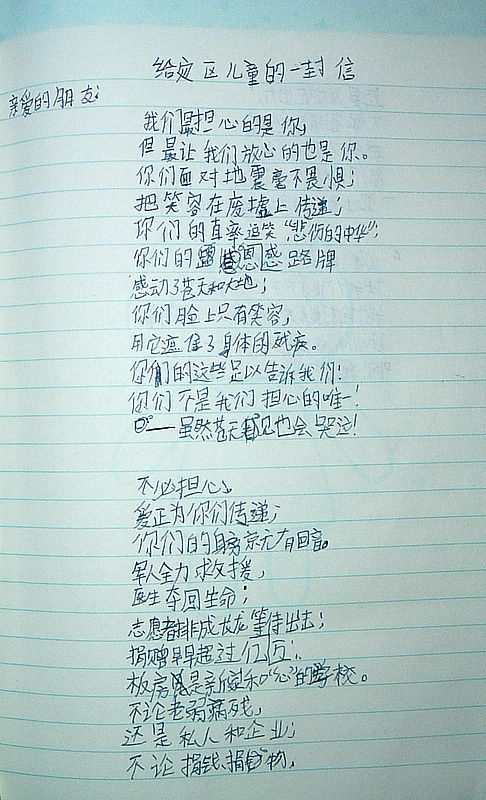 给灾区儿童的一封信
亲爱的朋友:
我们最担心的是你,
但最让我们放心的也是你。
你们面对地震毫不畏惧;
把笑容在废墟上传递;
你们的直率逗笑"悲伤的中华";
你们的感恩感路牌
感动了苍天和大地;
你们脸上只有笑容,
用它遮住了身体的残疾。
你们的这些足以告诉我们:
你们不是我们担心的唯一!
——虽然苍天看见也会哭泣!
不必担心,
爱正为你们传递;
你们的寻亲亦有回音。
军人全力救援,
医生夺回生命;
志愿者排成长龙等待出击;
捐赠早早超过亿万;
板房是新家和"心"的学校。
不论老弱病残,
还是私人和企业;
不论捐钱、捐物,